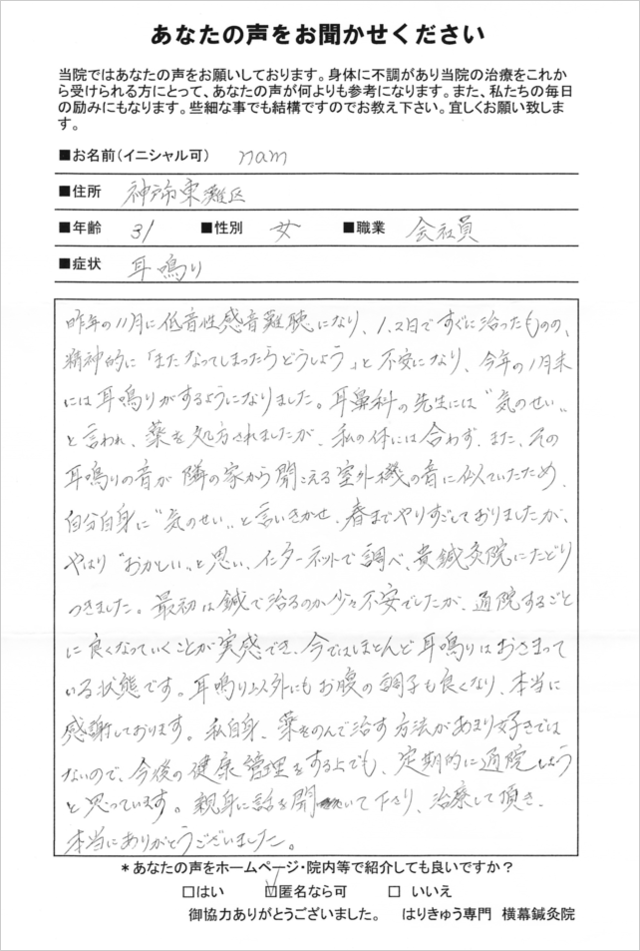 あなたの声をお聞かせください
当院ではあなたの声をお願いしております。身体に不調があり当院の治療をこれか
ら受けられる方にとって、あなたの声が何よりも参考になります。また、私たちの毎日
の励みにもなります。些細な事でも結構ですのでお教え下さい。宜しくお願い致しま
す。
■お名前(イニシャル可) nam
■住所 神戸市東灘区
■年齢 31 ■性別 女 ■職業 会社員
■症状 耳鳴り
昨年の11月に低音性感音難聴になり、1.2日ですぐに治ったものの、
精神的に「またなってしまったらどうしよう」と不安になり、今年の1月末
には耳鳴りがするようになりました。耳鼻科の先生には"気のせい"
と言われ、薬を処方されましたが、私の体には合わず、また、その
耳鳴りの音が隣の家から聞こえる室外機の音に似ていたため、
自分自身に"気のせい"と言いきかせ、春までやりすごしておりましたが、
やはり"おかしい"と思い、インターネットで調べ、貴鍼灸院にたどり
つきました。最初は鍼で治るのか少々不安でしたが、通院するごと
に良くなっていくことが実感でき、今ではほとんど耳鳴りはおさまって
いる状態です。耳鳴り以外にもお腹の調子も良くなり、本当に
感謝しております。私自身、薬をのんで治す方法があまり好きでは
ないので、今後の健康管理をする上でも、定期的に通院しよう
と思っています。親身に話を聞いて下さり、治療して頂き、
本当にありがとうございました。
*あなたの声をホームページ・院内等で紹介しても良いですか?
□はい ☑匿名なら可 □ いいえ
御協力ありがとうございました。 はりきゅう専門 横幕鍼灸院